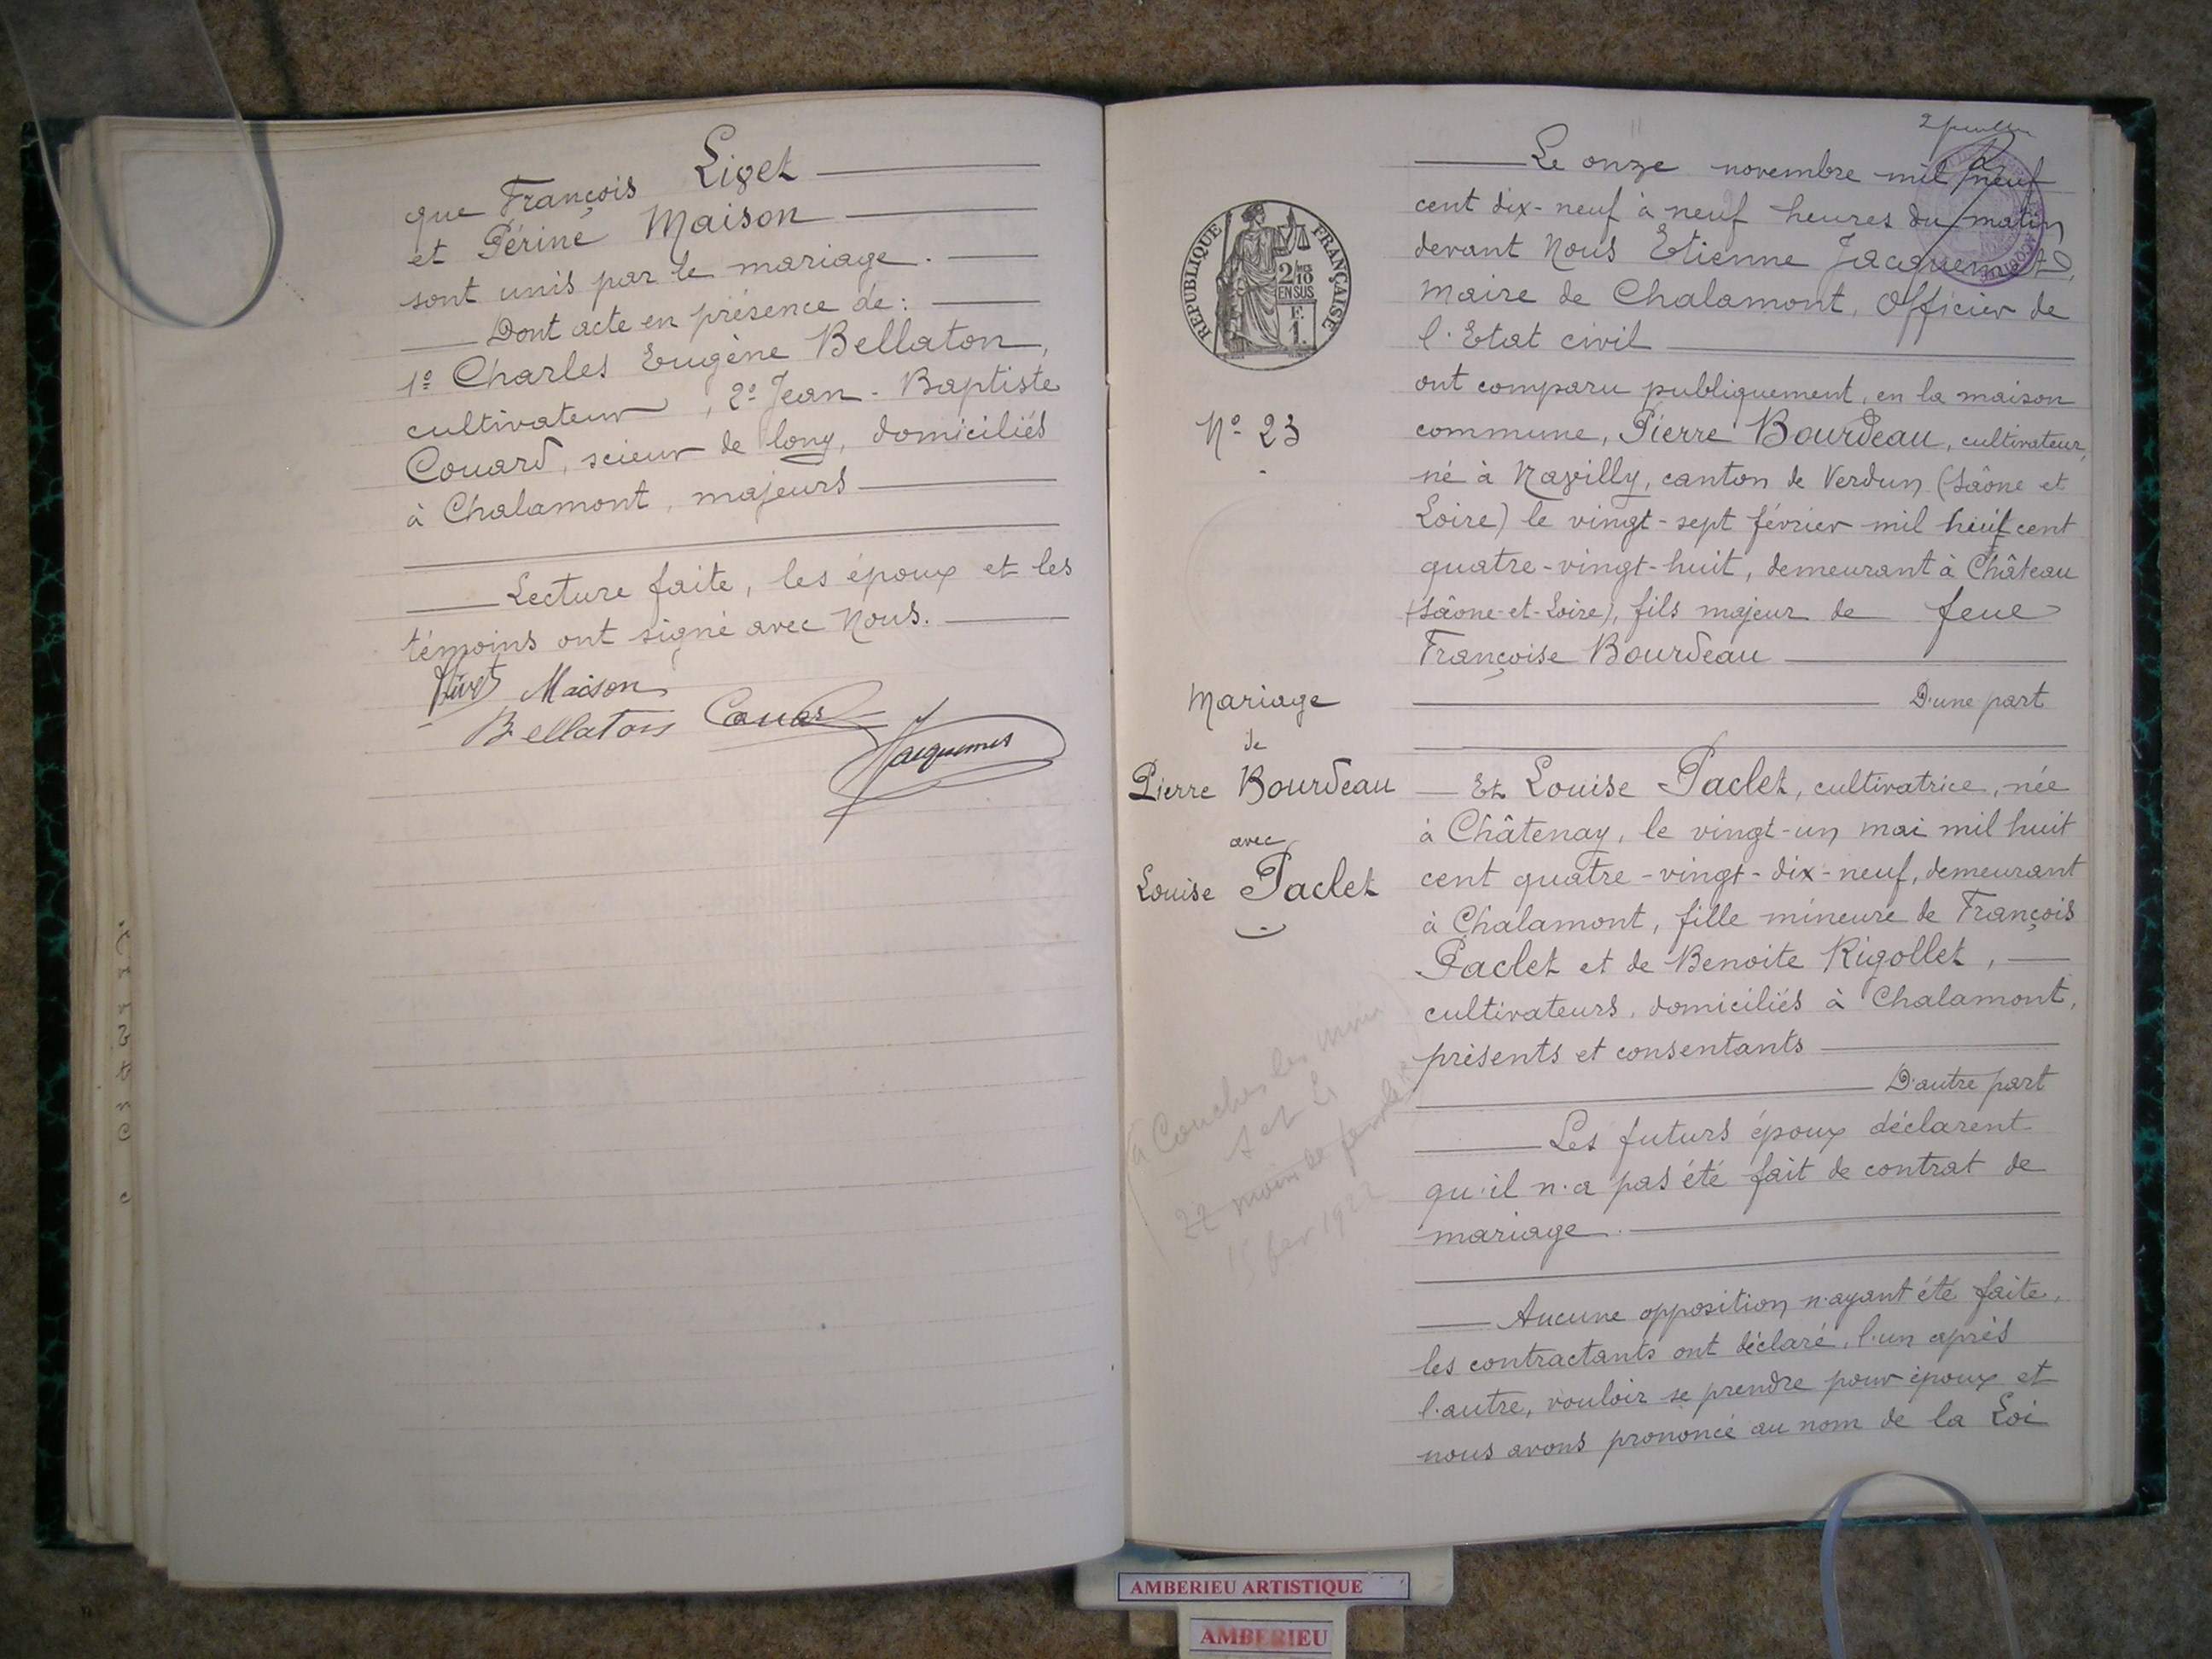 que François Livet
et Périne Maison
sont unis par le mariage.
Dont acte en présence de :
1º Charles Eugène Bellaton,
cultivateur, 2º Jean-Baptiste
Couard, scieur de long, domiciliés
à Chalamont, majeurs
Lecture faite, les époux et les
témoins ont signé avec Nous.
Livet Maison
Bellaton Couard
Jacquemet
REPUBLIQUE FRANÇAISE
2/10
EN SUS
F.
1.
Nº 23
Mariage
de
Pierre Bourdeau
avec
Louise Paclet
Le onze novembre mil neuf
cent dix-neuf à neuf heures du matin
devant Nous Etienne Jacquemet,
Maire de Chalamont, Officier de
l'Etat civil
ont comparu publiquement, en la maison
commune, Pierre Bourdeau, cultivateur,
né à Navilly, canton de Verdun (Sâone et
Loire) le vingt-sept février mil huit cent
quatre-vingt-huit, demeurant à Château
(Sâone-et-Loire), fils majeur de feue
Françoise Bourdeau
D'une part
Et Louise Paclet, cultivatrice, née
à Châtenay, le vingt-un mai mil huit
cent quatre-vingt-dix-neuf, demeurant
à Chalamont, fille mineure de François
Paclet et de Benoite Rigollet,
cultivateurs, domiciliés à Chalamont,
présents et consentants
D'autre part
Les futurs époux déclarent
qu'il n'a pas été fait de contrat de
mariage.
Aucune opposition n'ayant été faite,
les contractants ont déclaré, l'un après
l'autre, vouloir se prendre pour époux et
nous avons prononcé au nom de la Loi
à Couches les
1922
AMBERIEU ARTISTIQUE
AMBERIEU